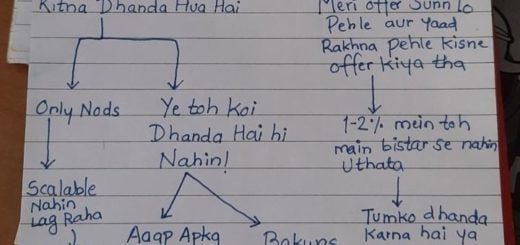 Kitna Dhanda Hua Hai
Only Nods
Scalable
Nahin
Lag Raha
Ye toh koi
Dhanda Hai hi
Nahin!
Aaap Apka
Bakwas
Meri offer Sunn lo
Pehle aur Yaad
Rakhna pehle kisne
offer kiya tha
1-2% mein toh
main bistar se nahin
Uthata
Tumko dhanda
Karna hai ya